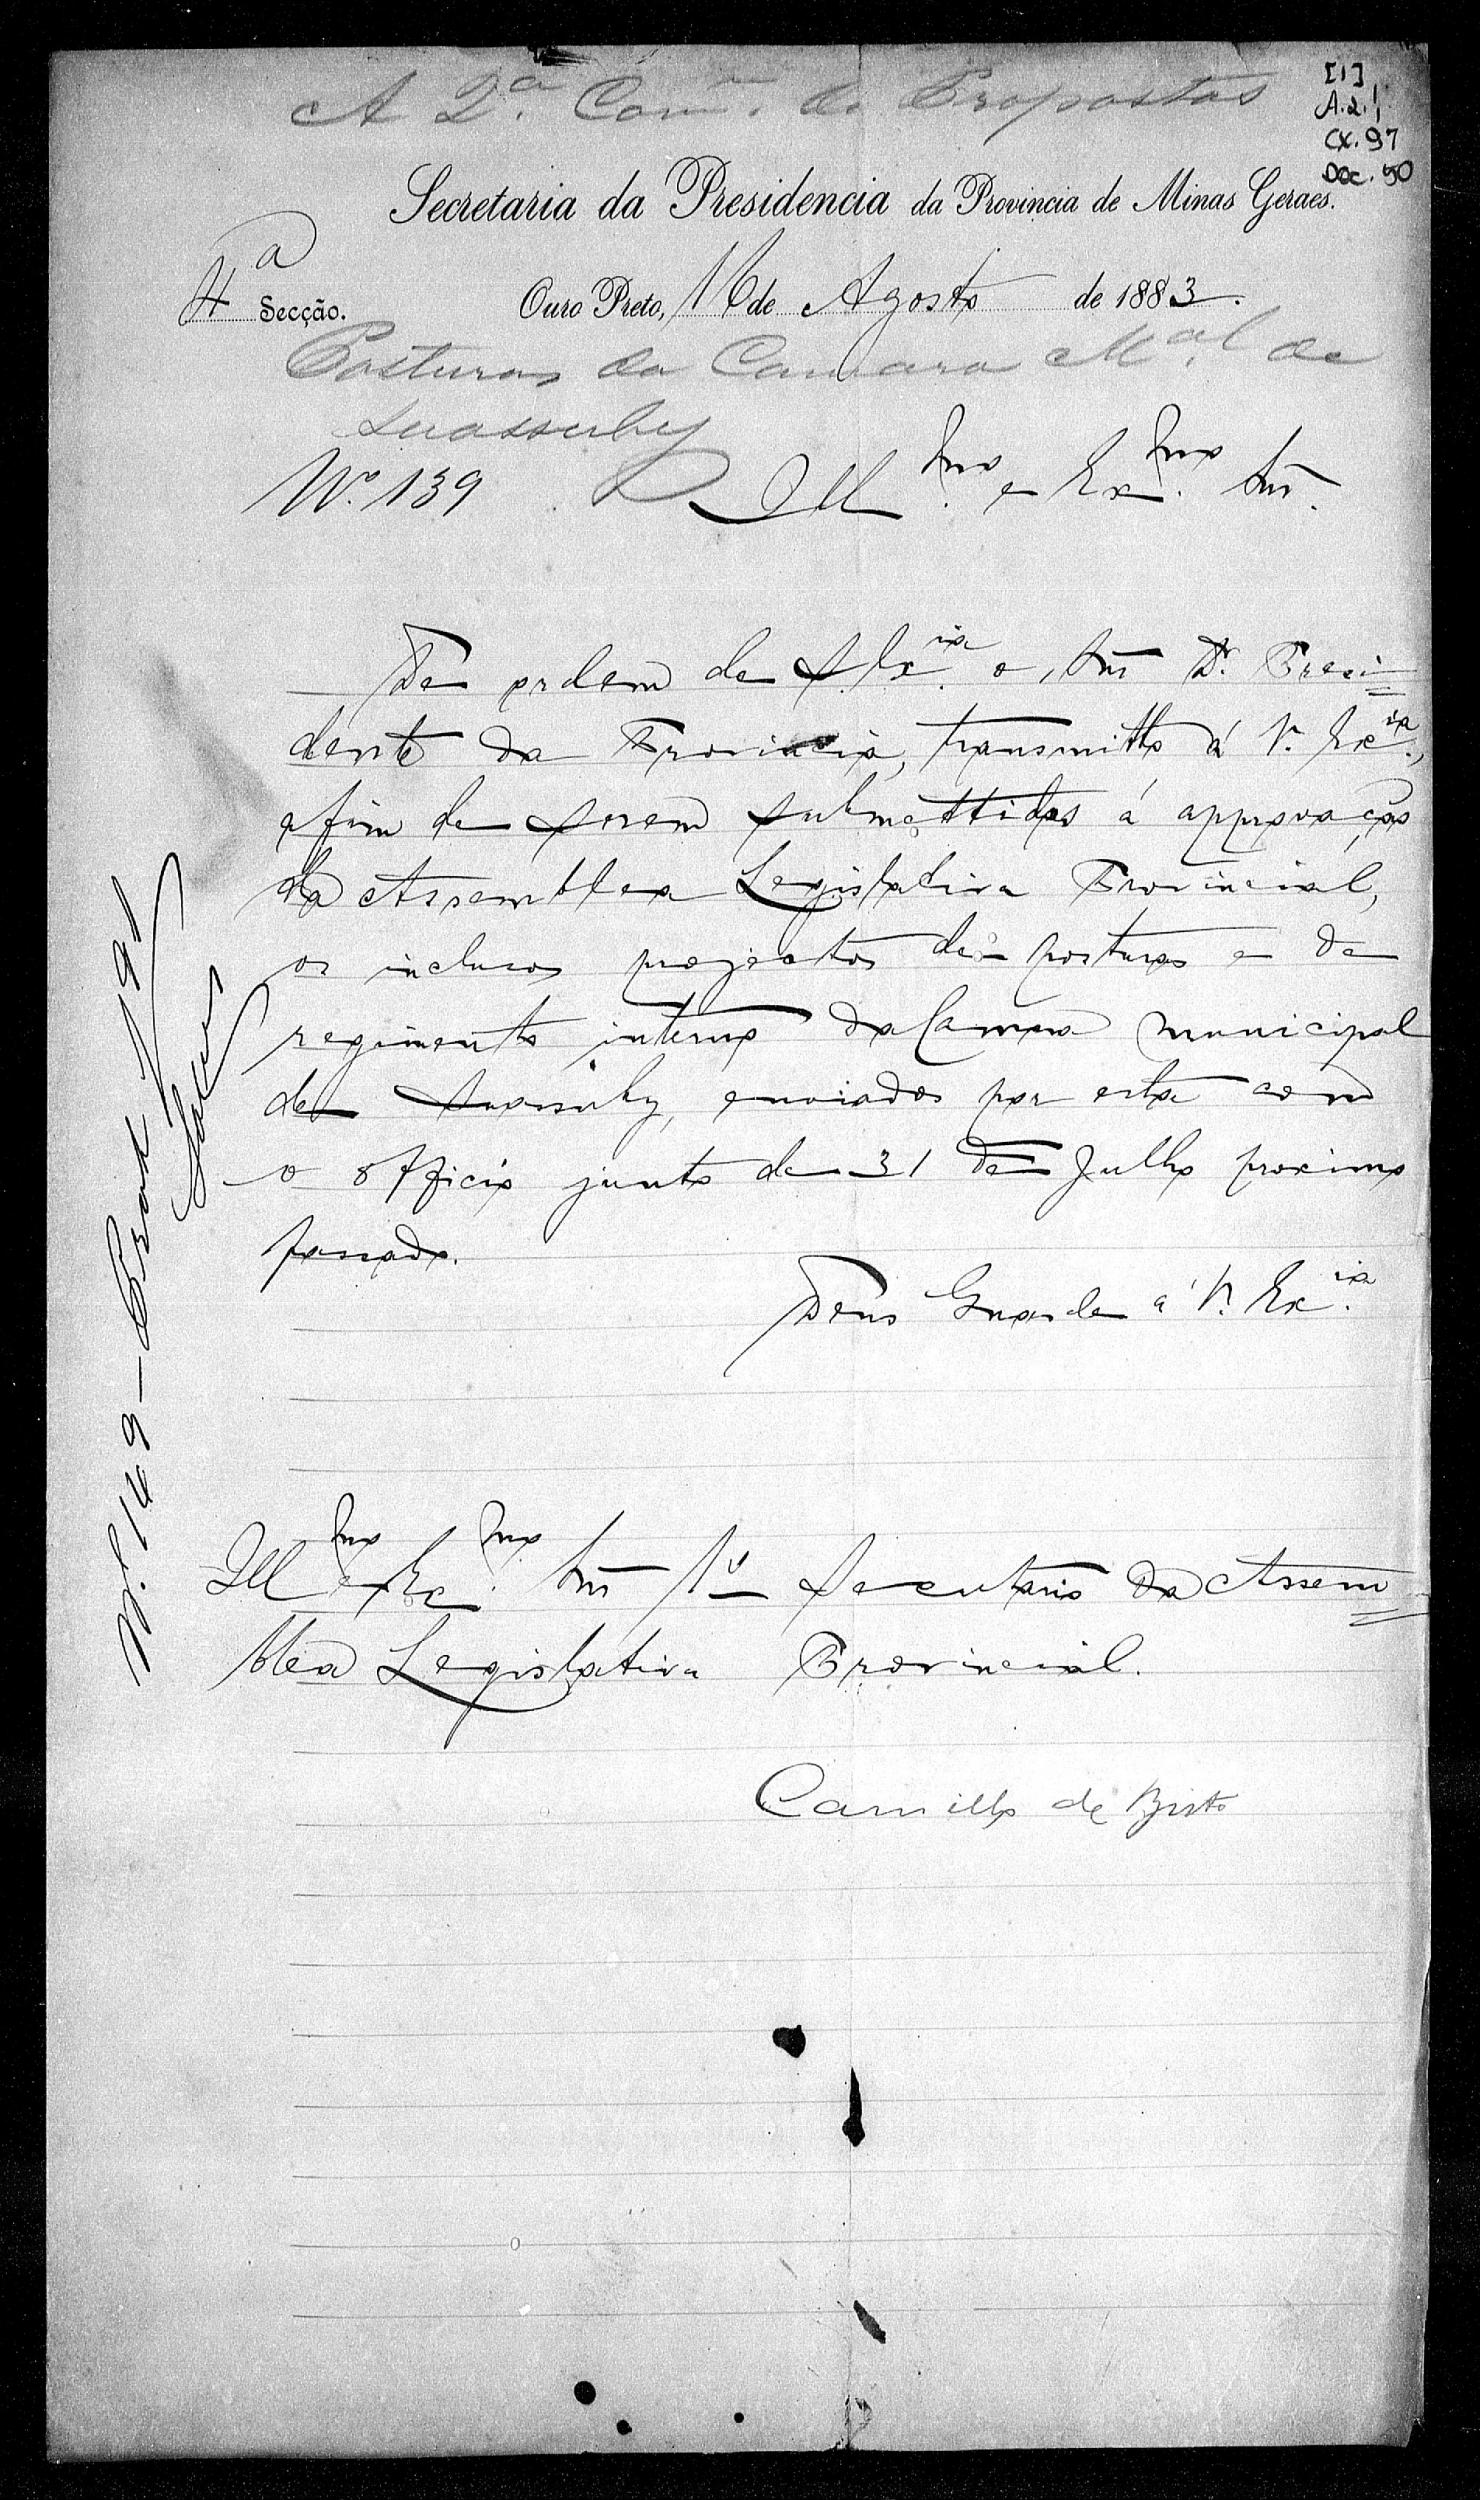 A 2.ª Com.m de Propostas
[1]
A.2.1
CX. 97
Doc. 50
Secretaria da Presidencia da Provincia de Minas Geraes.
4ª Secção. Ouro Preto, 16 de Agosto de 1883.
Posturas da Camara M.al de
Suassuhy
Nº 139
Ill.mo e Ex.mo Snr.
De ordem de S. Ex.ia o Snr Dr. Presi=
dente da Provincia, transmitto á V. Ex.ia,
afim de serem submettidos á approvação
da Assemblea Legislativa Provincial,
os inclusos projectos de posturas e de
regimento interno da Camara municipal
de Suassuhy, enviados por esta com
o officio junto de 31 de Julho proximo
passado.
Deus Guarde á V. Ex.ia
Ill.mo e Ex.mo Snr 1º Secretario da Assem=
blea Legislativa Provincial.
Camillo de Brito